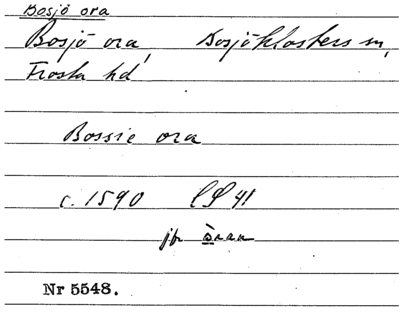 Bosjö ora
Bosjö ora, Bosjöklosters sn,
Frosta hd
Bossie ora
c. 1590 LP 41
jfr Öraan
Nr 5548.